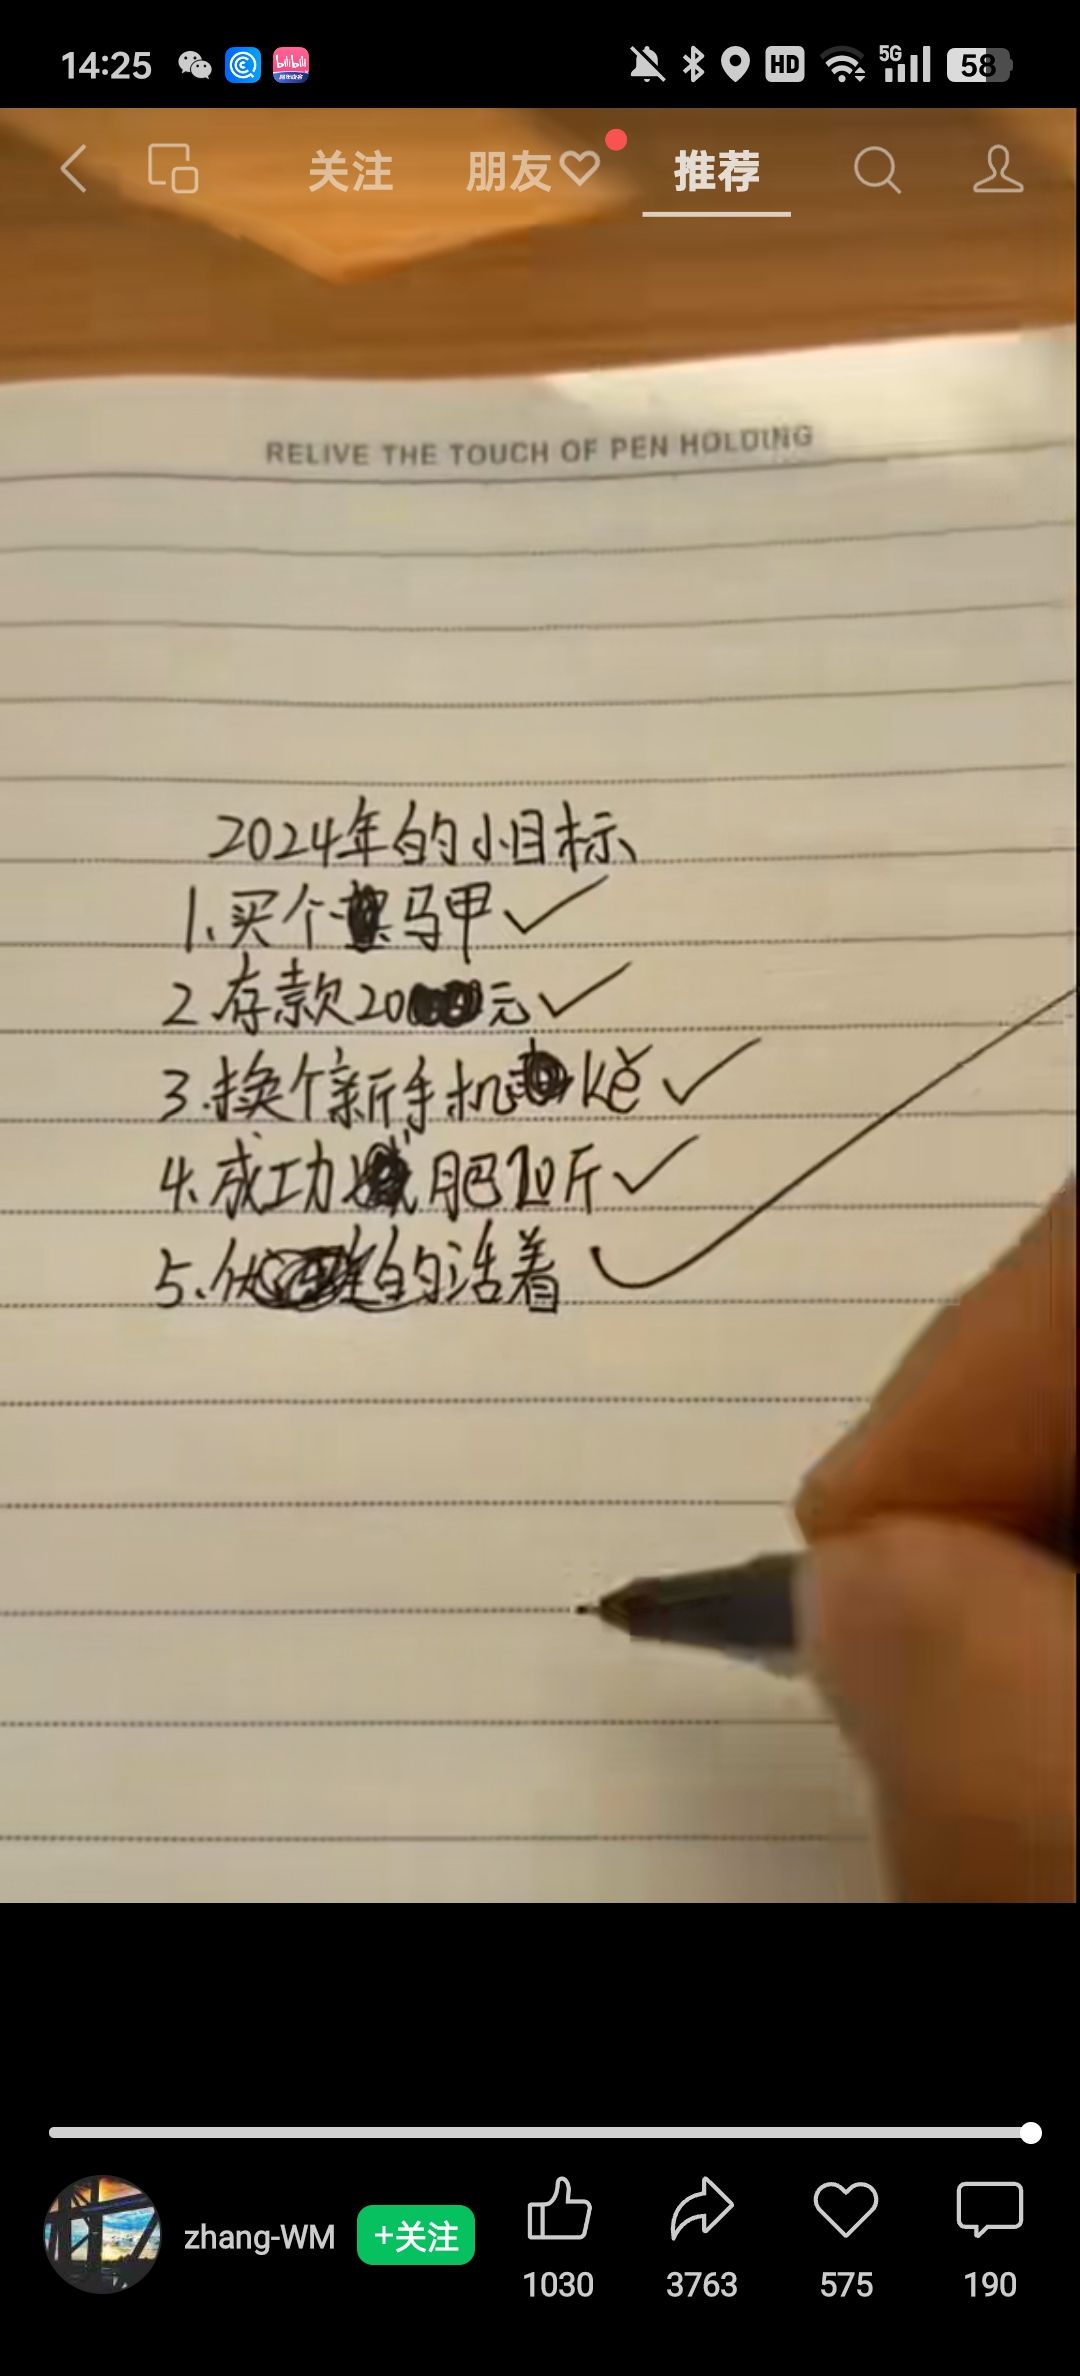 14:25
HD
5G
58
关注 朋友 推荐
RELIVE THE TOUCH OF PEN HOLDING
2024年的小目标
1.买个马甲
2.存款20元
3.换个新手机ké
4.成功肥10斤
5.的活着
zhang-WM
+关注
1030 3763 575 190